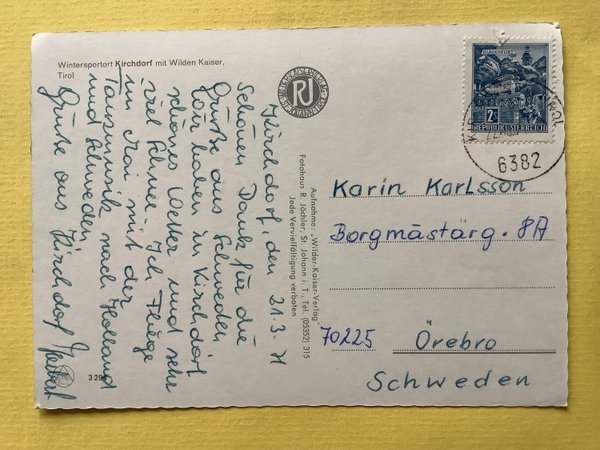 Wintersportort Kirchdorf mit Wilden Kaiser,
Tirol
Kirchdorf, den 21.3.71
Schönen Dank für die
Grüße aus Schweden.
Wir haben in Kirchdorf
schönes Wetter und sehr
viel Schnee. Ich fliege
im Mai mit der
Tanzmusik nach Holland
und Schweden.
Grüße aus Kirchdorf
RJ
Aufnahme: „Wilder-Kaiser-Verlag"
Fotohaus R. Jöchler, St. Johann i. T., Tel. (05352) 315
Jede Vervielfältigung verboten
329
2S
REPUBLIK ÖSTERREICH
6382
Karin Karlsson
Borgmästarg. 8A
70225 Örebro
Schweden